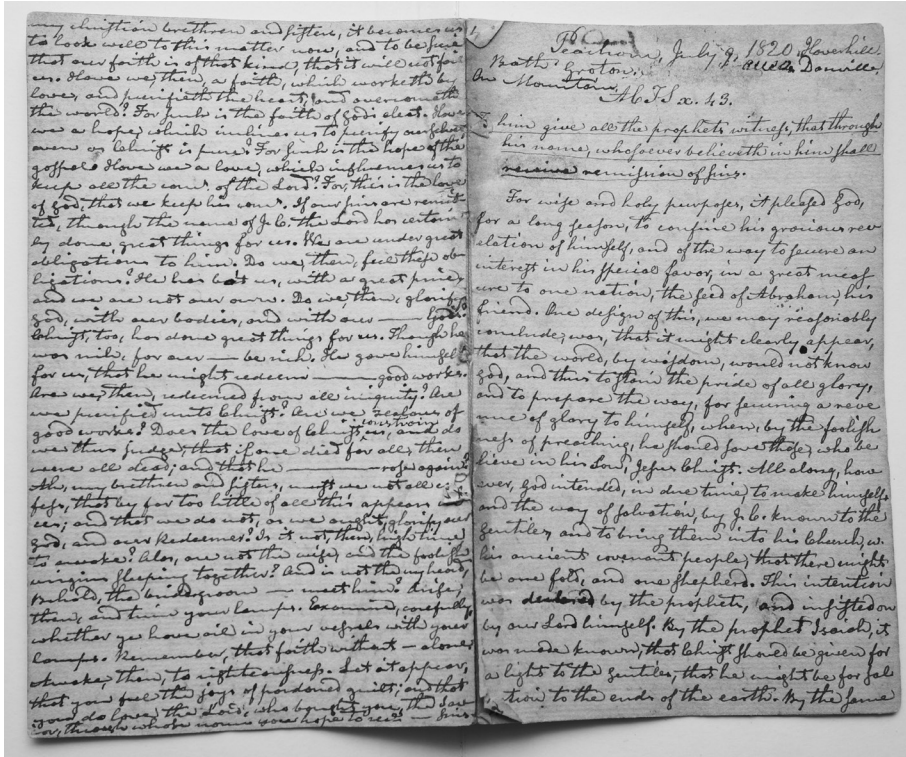 my christian brethren and sisters, it becomes us
to look well to this matter now, and to be sure
that our faith is of that kind, that it will not fail
us. Have we then, a faith, which worketh by
love, and purifieth the heart, and overcometh
the world? For such is the faith of God's elect. Have
we a hope, which inclines us to purify ourselves
even as Christ is pure? For such is the hope of the
gospel. Have we a love, which influences us to
keep all the com's of the Lord? For, this is the love
of God, that we keep his com's. If our sins are remit-
ted, through the name of J. C. the Lord has certain
ly done great things for us. We are under great
obligations to him. Do we, then, feel these ob
ligations? He has bot us, with a great price,
and we are not our own. Do we, then, glorify
God, with our bodies, and with our — God's
Christ, too, has done great things for us. Though he
was rich, for our — be rich. He gave himself
for us, that he might redeem — good works.
Are we, then, redeemed from all iniquity? Are
we purified unto Christ? Are we zealous of
good works? Does the love of Christ constrain us, and do
we thus judge, that if one died for all, then
were all dead; and that he — rose again?
Ah, my brethren and sisters, must we not all con
fess, that by far too little of all this appears in
us; and that we do not, as we ought, glorify our
God, and our Redeemer? Is it not then, high time
to awake? Alas, are not the wise, and the foolish
virgins sleeping together? And is not the cry heard,
Behold, the bridegroom — meet him? Arise,
then, and trim your lamps. Examine, carefully,
whether ye have oil in your vessels with your
lamps. Remember, that faith without — alone.
Awake, then, to righteousness. Let it appear,
that you feel the joys of pardoned guilt; and that
you do love, the Lord, who bought you, the Sav
ior, through whose name you hope to receive — sins
Peacham, July 9, 1820, Haverhill.
Bath. Groton. Danville.
On Mountain.
ACTS x. 43.
To him give all the prophets witness, that through
his name, whosoever believeth in him shall
receive remission of sins.
For wise and holy purposes, it pleased God,
for a long season, to confine his gracious rev
elation of himself, and of the way to secure an
interest in his special favor, in a great meas
ure to one nation, the seed of Abraham, his
friend. One design of this, we may reasonably
conclude, was, that it might clearly appear,
that the world, by wisdom, would not know
God, and thus to stain the pride of all glory,
and to prepare the way, for securing a reve
nue of glory to himself, when, by the foolish
ness of preaching, he should save those, who be
lieve in his Son, Jesus Christ. All along, how
ever, God intended, in due time, to make himself,
and the way of salvation, by J. C. known to the
Gentiles, and to bring them into his Church, w.
his ancient covenant people, that there might
be one fold, and one shepherd. This intention
was declared by the prophets, and insisted on
by our Lord himself. By the prophet Isaiah, it
was made known, that Christ should be given for
a light to the Gentiles, that he might be for sal
tion to the ends of the earth. By the same